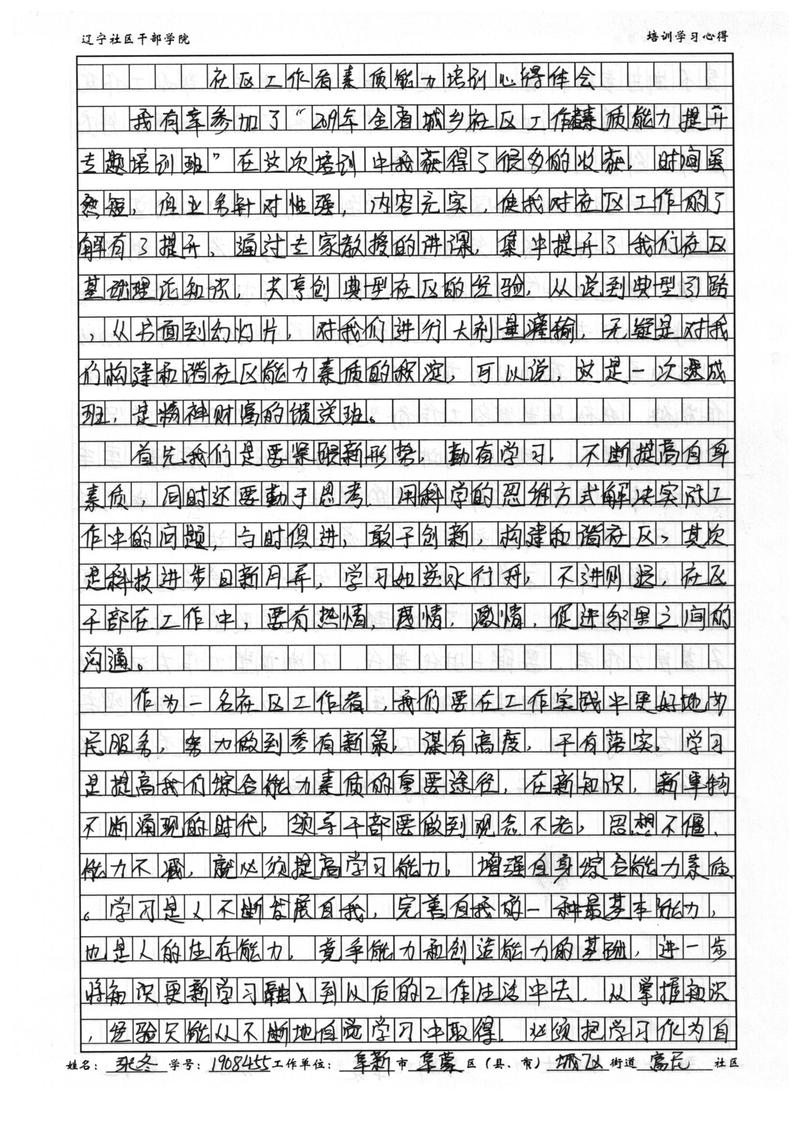 辽宁社区干部学院
培训学习心得
社区工作者素质能力培训心得体会
我有幸参加了“2019年全省城乡社区工作者素质能力提升
专题培训班”在这次培训中我获得了很多的收获,时间虽
然短,但业务针对性强,内容充实,使我对社区工作的了
解有了提升,通过专家教授的讲课,集中提升了我们社区
基础理论知识,共享创典型社区的经验,从说到典型引路
,从书面到幻灯片,对我们进行大剂量灌输,无疑是对我
们构建和谐社区能力素质的积淀,可以说,这是一次速成
班,是精神财富的馈送班。
首先我们是要紧跟新形势,勤有学习,不断提高自身
素质,同时还要勤于思考,用科学的思维方式解决实际工
作中的问题,与时俱进,敢于创新,构建和谐社区,其次
是科技进步日新月异,学习如逆水行舟,不进则退,社区
干部在工作中,要有热情,感情,激情,促进邻里之间的
沟通。
作为一名社区工作者,我们要在工作实践中更好地为
民服务,努力做到季有新策,谋有高度,干有落实,学习
是提高我们综合能力素质的重要途径,在新知识,新事物
不断涌现的时代,领导干部要做到观念不老,思想不僵、
能力不减,就必须提高学习能力,增强自身综合能力素质
。学习是人不断发展自我,完善自我的一种最基本能力,
也是人的生存能力,竞争能力和创造能力的基础,进一步
将知识更新学习融入到以后的工作生活中去,从掌握知识
,经验只能从不断地自觉学习中取得,必须把学习作为自
姓名:张冬 学号:1908455 工作单位:阜新市阜蒙区(县、市)城区街道富民社区